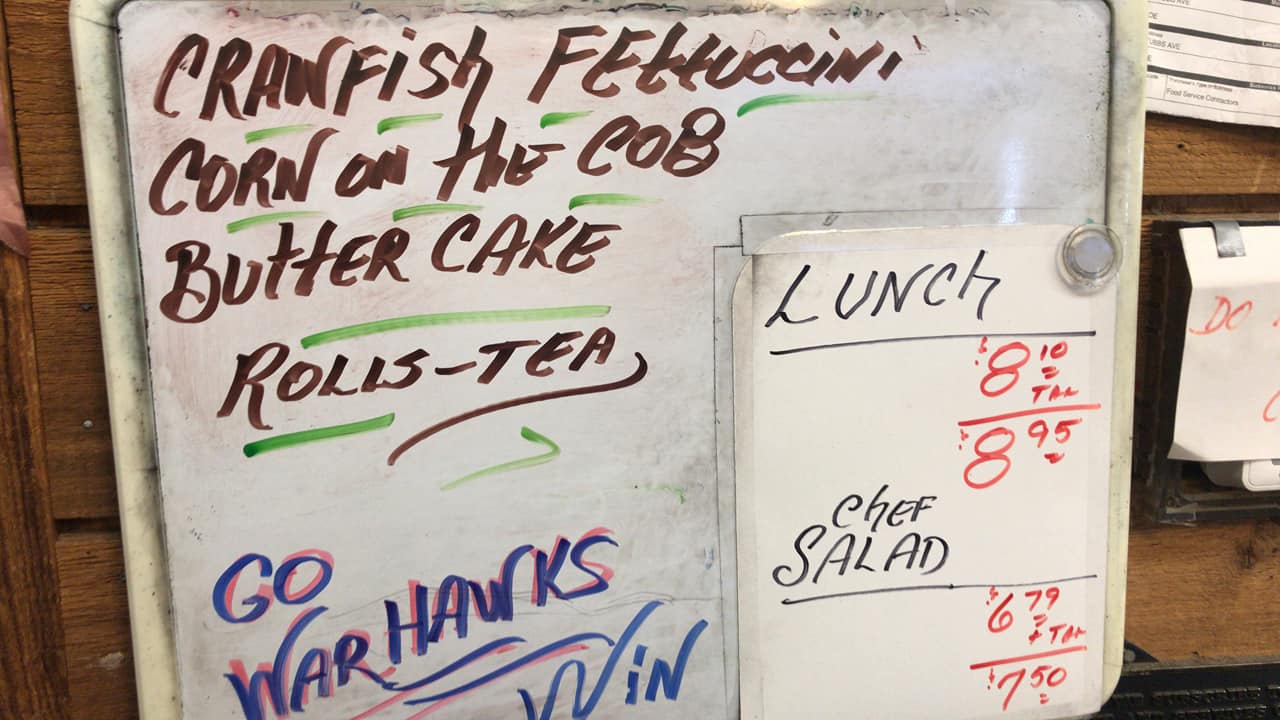 CRAWFISH FETTUCCINI
CORN ON THE COB
BUTTER CAKE
ROLLS-TEA
GO
WARHAWKS
WIN
LUNCH
$8 10
TAX
$8 95
CHEF
SALAD
$6 79
+ TAX
$7 50
DO
Food Service Contractors